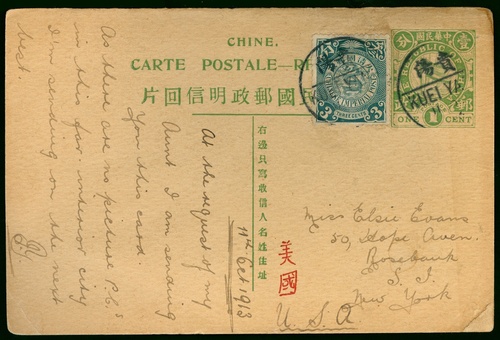 CHINE.
CARTE POSTALE—RÉ
片回信明政郵國
右邊只寫收信人名姓住址
分
3 THREE CENTS 3
中華民國
壹
分
郵
貴陽
KUEI YA
ONE 1 CENT
At the request of my
Aunt I am sending
You this card
As there are no picture P.C.s
in this far interior city
I'm sending on the next
best.
11th Oct 1913
美國
Miss Elsie Evans
50, Hope Aven.
Rosebank
S. I.
New York
U. S. A